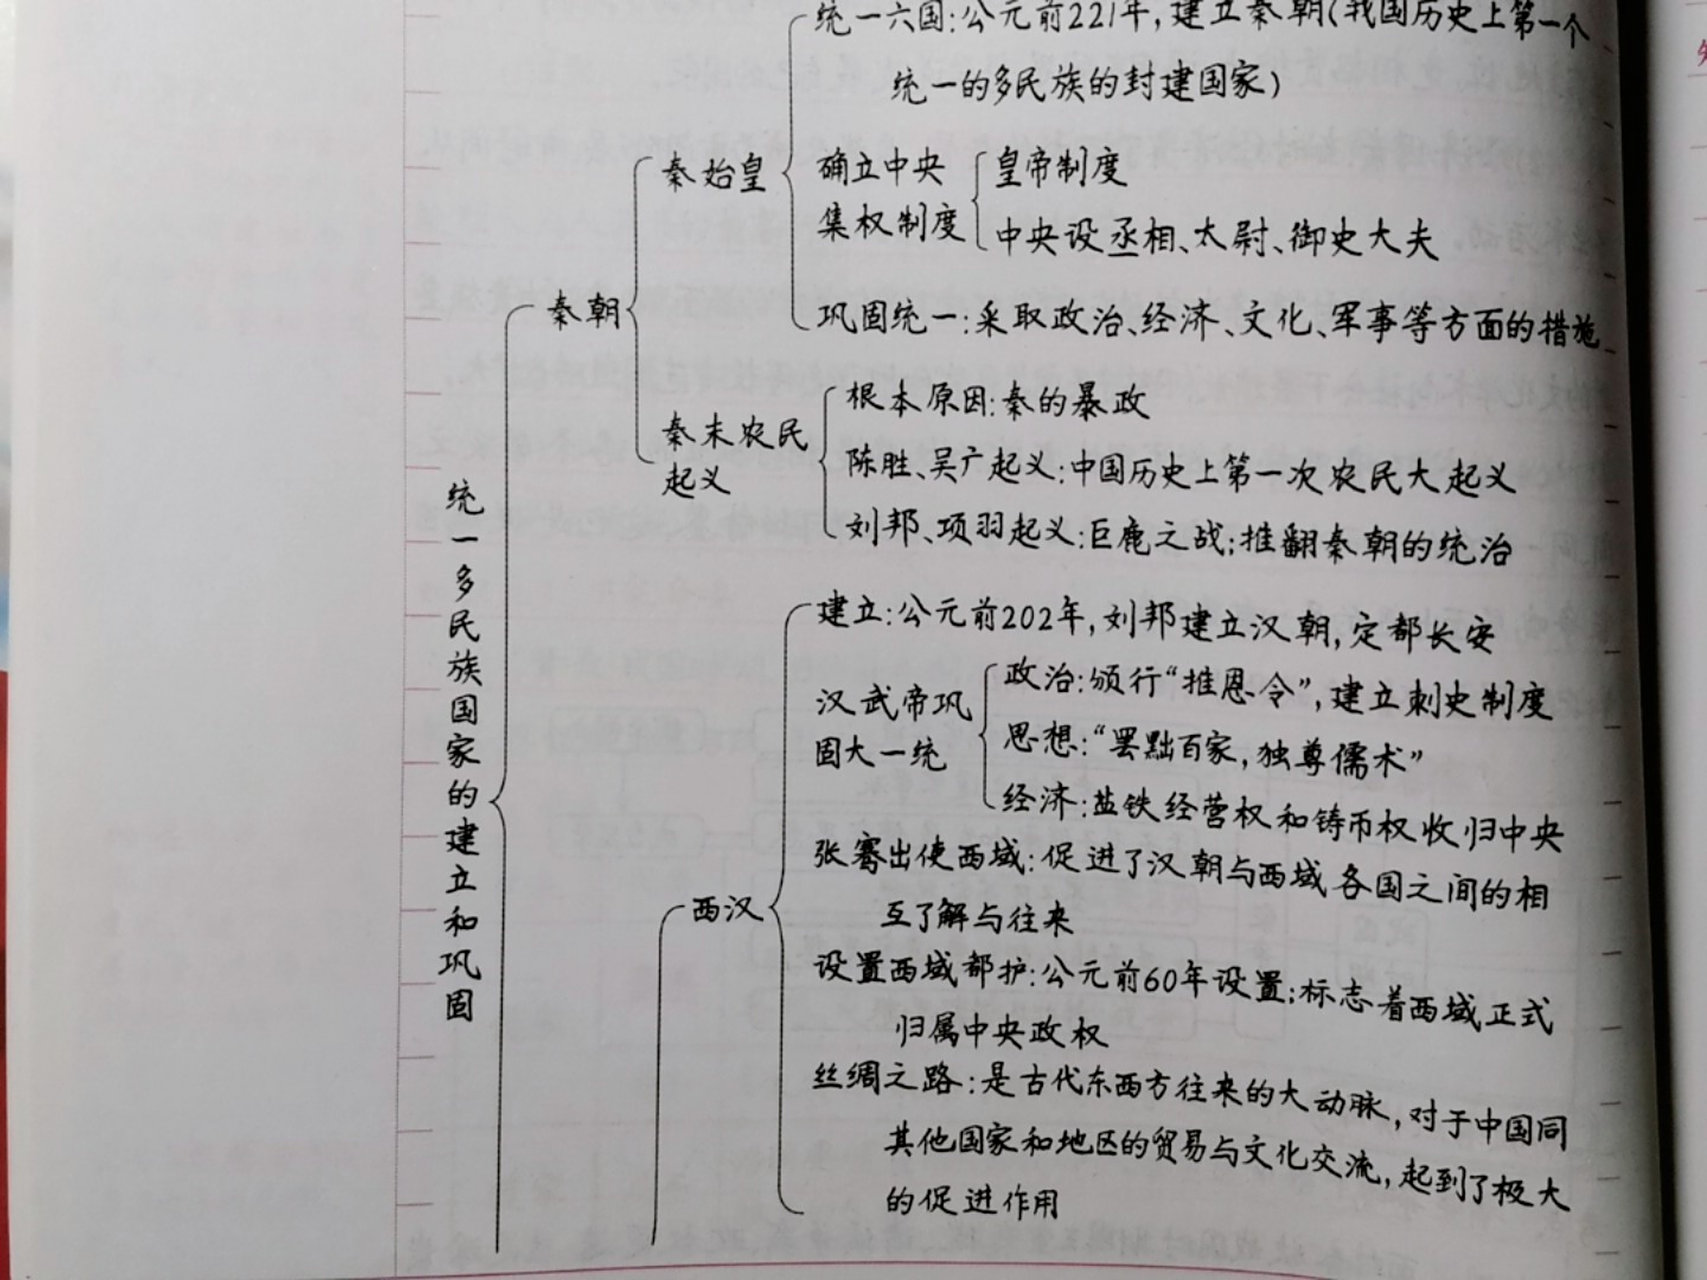 统一六国:公元前221年,建立秦朝(我国历史上第一个
统一的多民族的封建国家)
秦始皇
确立中央
集权制度
皇帝制度
中央设丞相、太尉、御史大夫
秦朝
巩固统一:采取政治、经济、文化、军事等方面的措施
秦末农民
起义
根本原因:秦的暴政
陈胜、吴广起义:中国历史上第一次农民大起义
刘邦、项羽起义:巨鹿之战;推翻秦朝的统治
统一多民族国家的建立和巩固
西汉
建立:公元前202年,刘邦建立汉朝,定都长安
汉武帝巩
固大一统
政治:颁行“推恩令”,建立刺史制度
思想:“罢黜百家,独尊儒术”
经济:盐铁经营权和铸币权收归中央
张骞出使西域:促进了汉朝与西域各国之间的相
互了解与往来
设置西域都护:公元前60年设置;标志着西域正式
归属中央政权
丝绸之路:是古代东西方往来的大动脉,对于中国同
其他国家和地区的贸易与文化交流,起到了极大
的促进作用